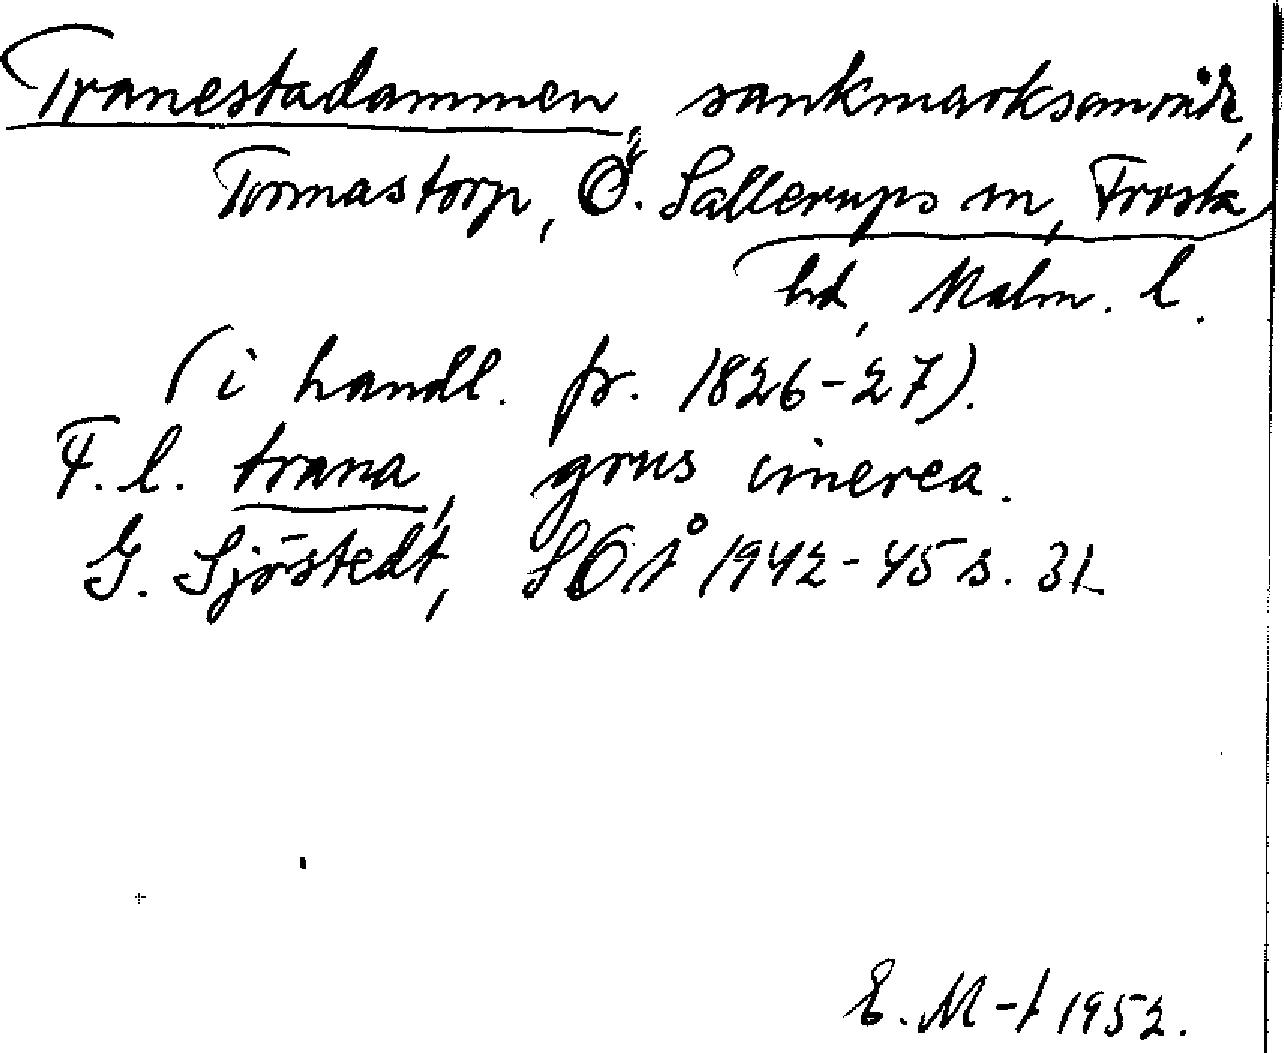 Tranestadammen, sankmarksområde,
Tormastorp, Ö. Sallerups sn, Frosta
hd, Malm. l.
(i handl. fr. 1826-27).
F. l. trana, grus cinerea.
G. Sjöstedt, SOÅ 1942-45 s. 31
E. M-t 1952.